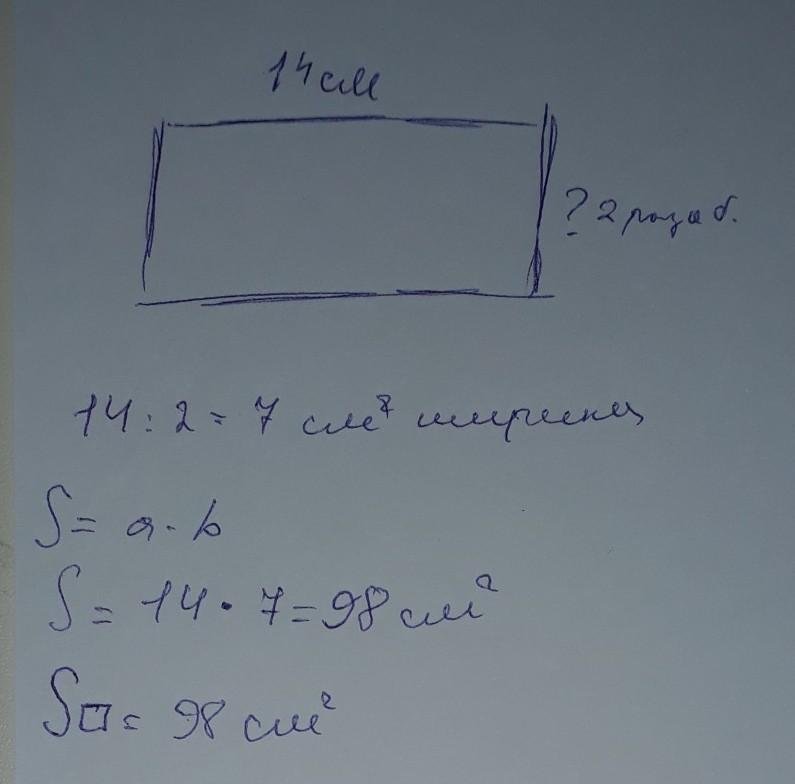 14 см
? 2 раза б.
14 : 2 = 7 см² ширина
S = a · b
S = 14 · 7 = 98 см²
S□ = 98 см²